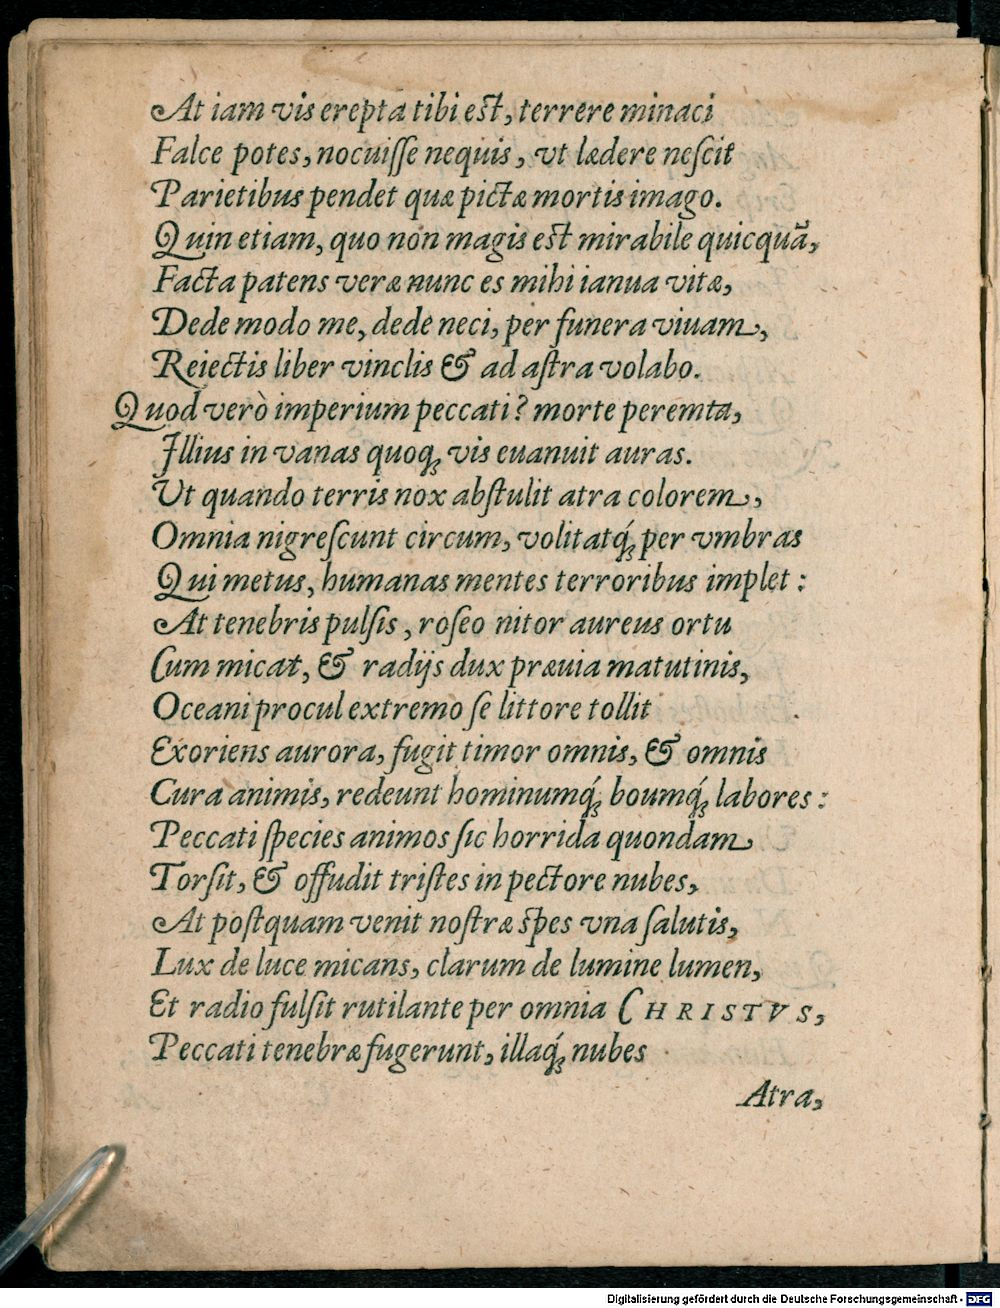 At iam vis erepta tibi est, terrere minaci
Falce potes, nocuiſſe nequis, vt lædere neſcit
Parietibus pendet quæ pictæ mortis imago.
Quin etiam, quo non magis est mirabile quicquā,
Facta patens veræ nunc es mihi ianua vitæ,
Dede modo me, dede neci, per funera viuam,
Reiectis liber vinclis & ad aſtra volabo.
Quod verò imperium peccati? morte peremta,
Illius in vanas quoq́; vis euanuit auras.
Ut quando terris nox abſtulit atra colorem,
Omnia nigreſcunt circum, volitatq́; per vmbras
Qui metus, humanas mentes terroribus implet:
At tenebris pulſis, roſeo nitor aureus ortu
Cum micat, & radijs dux præuia matutinis,
Oceani procul extremo ſe littore tollit
Exoriens aurora, fugit timor omnis, & omnis
Cura animis, redeunt hominumq́; boumq́; labores:
Peccati ſpecies animos ſic horrida quondam
Torſit, & offudit triſtes in pectore nubes,
At poſtquam venit noſtræ ſpes vna ſalutis,
Lux de luce micans, clarum de lumine lumen,
Et radio fulſit rutilante per omnia CHRISTVS,
Peccati tenebræ fugerunt, illaq́; nubes
Atra,
Digitalisierung gefördert durch die Deutsche Forschungsgemeinschaft - DFG